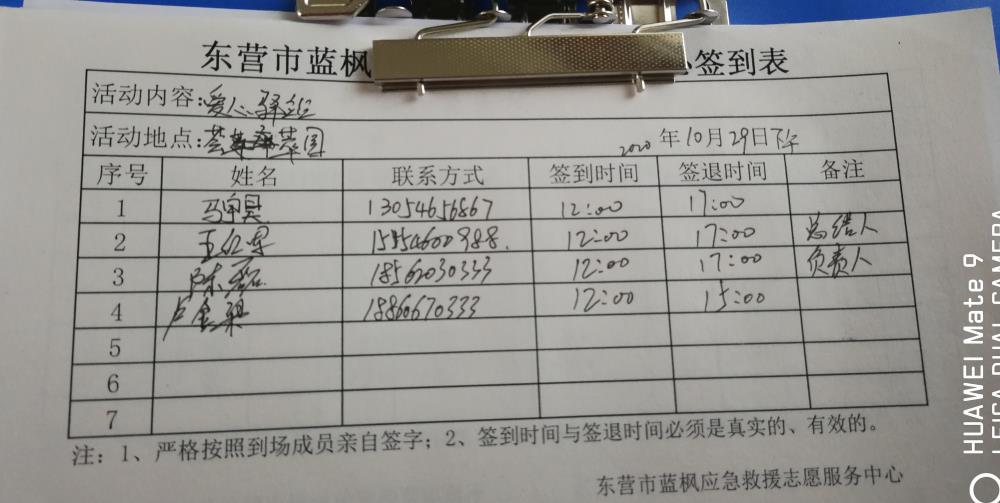 东营市蓝枫 签到表
活动内容:爱心驿站
活动地点: 2020年10月29日下午
序号 姓名 联系方式 签到时间 签退时间 备注
1 13054656867 12:00 17:00
2 12:00 17:00 总结人
3 陈磊 18562030333 12:00 17:00 负责人
4 18860670333 12:00 15:00
5
6
7
注:1、严格按照到场成员亲自签字;2、签到时间与签退时间必须是真实的、有效的。
东营市蓝枫应急救援志愿服务中心
HUAWEI Mate 9
LEICA DUAL CAMERA